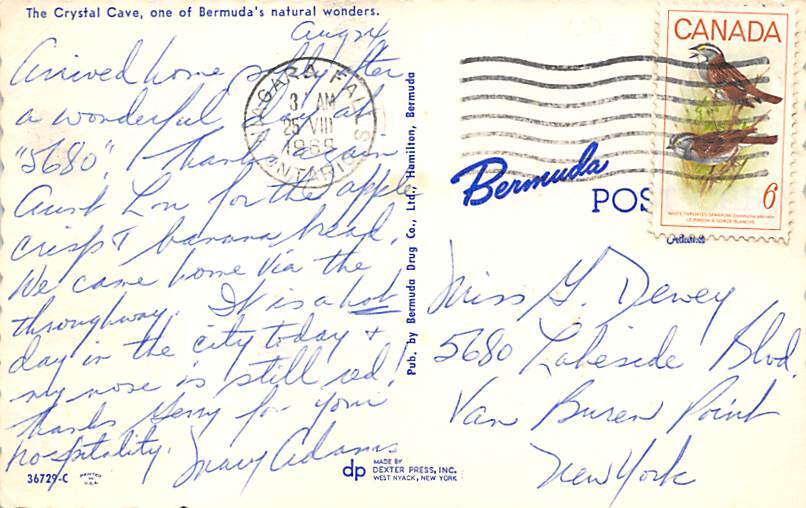 The Crystal Cave, one of Bermuda's natural wonders.
Aug 24
Arrived home safely after
a wonderful day at
"5680". Thanks again
Aunt Lou for the apple
crisp & banana bread.
We came home via the
throughway. It is a hot
day in the city today &
my nose is still red!
Thanks Gerry for your
hospitality. Mary Adams
36729-C
PRINTED
IN
U.S.A.
Pub. by Bermuda Drug Co., Ltd., Hamilton, Bermuda
dp
MADE BY
DEXTER PRESS, INC.
WEST NYACK, NEW YORK
NIAGARA FALLS
3 AM
25 VIII
1969
ONTARIO
Bermuda
POS
CANADA
6
WHITE-THROATED SPARROW
LE PINSON À GORGE BLANCHE
Miss G. Dewey
5680 Lakeside Blvd.
Van Buren Point
New York